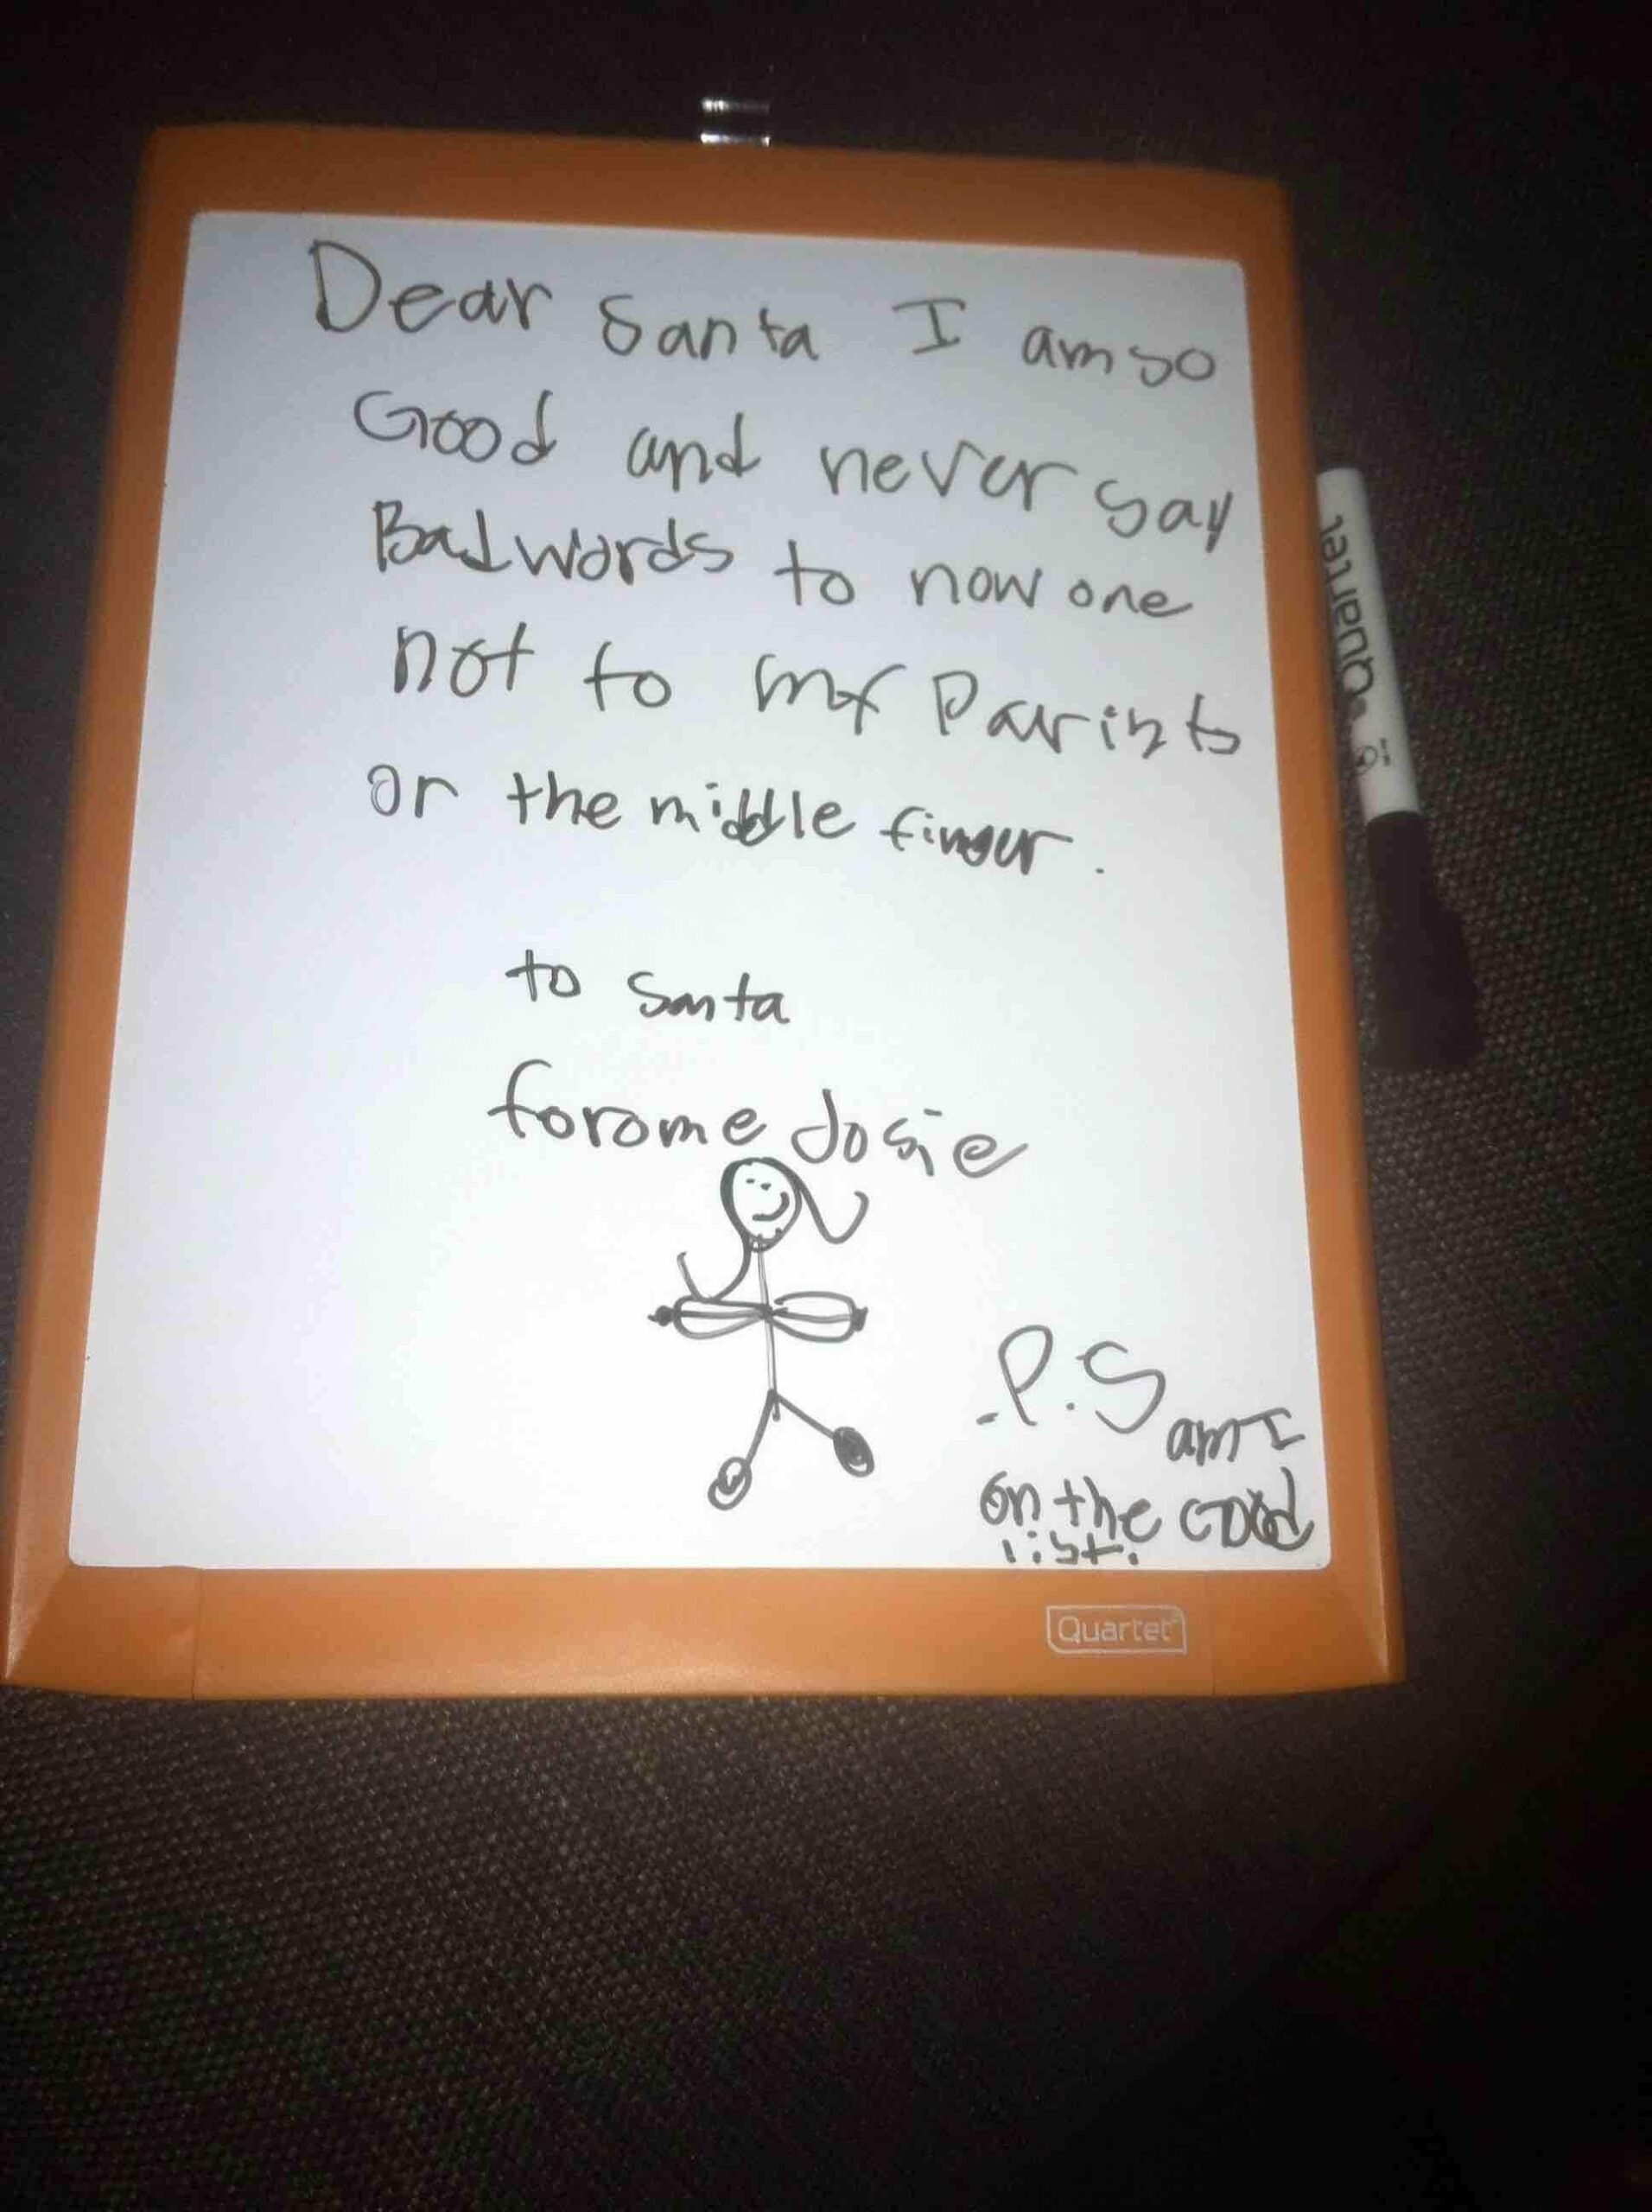 Dear Santa I am so
Good and never say
Bad words to now one
not to my Parints
or the middle finger.
to Santa
forome Josie
P.S am I
on the Good
list.
Quartet
Quartet